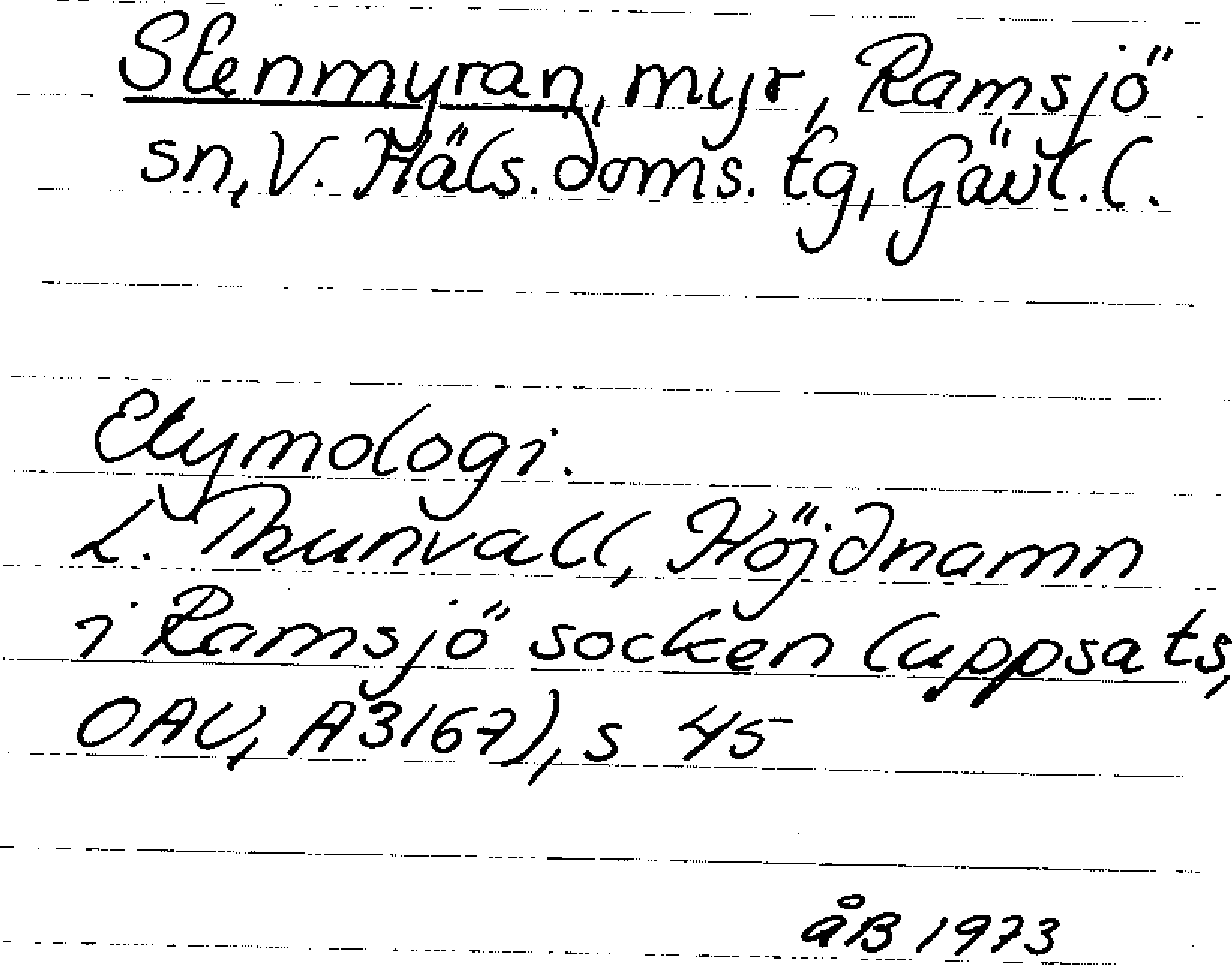 Stenmyran, myr, Ramsjö
sn, V. Häls. doms. tg, Gävl. l.
Etymologi.
L. Thunvall, Höjdnamn
i Ramsjö socken (uppsats,
OAU, A3167), s 45
åB 1973